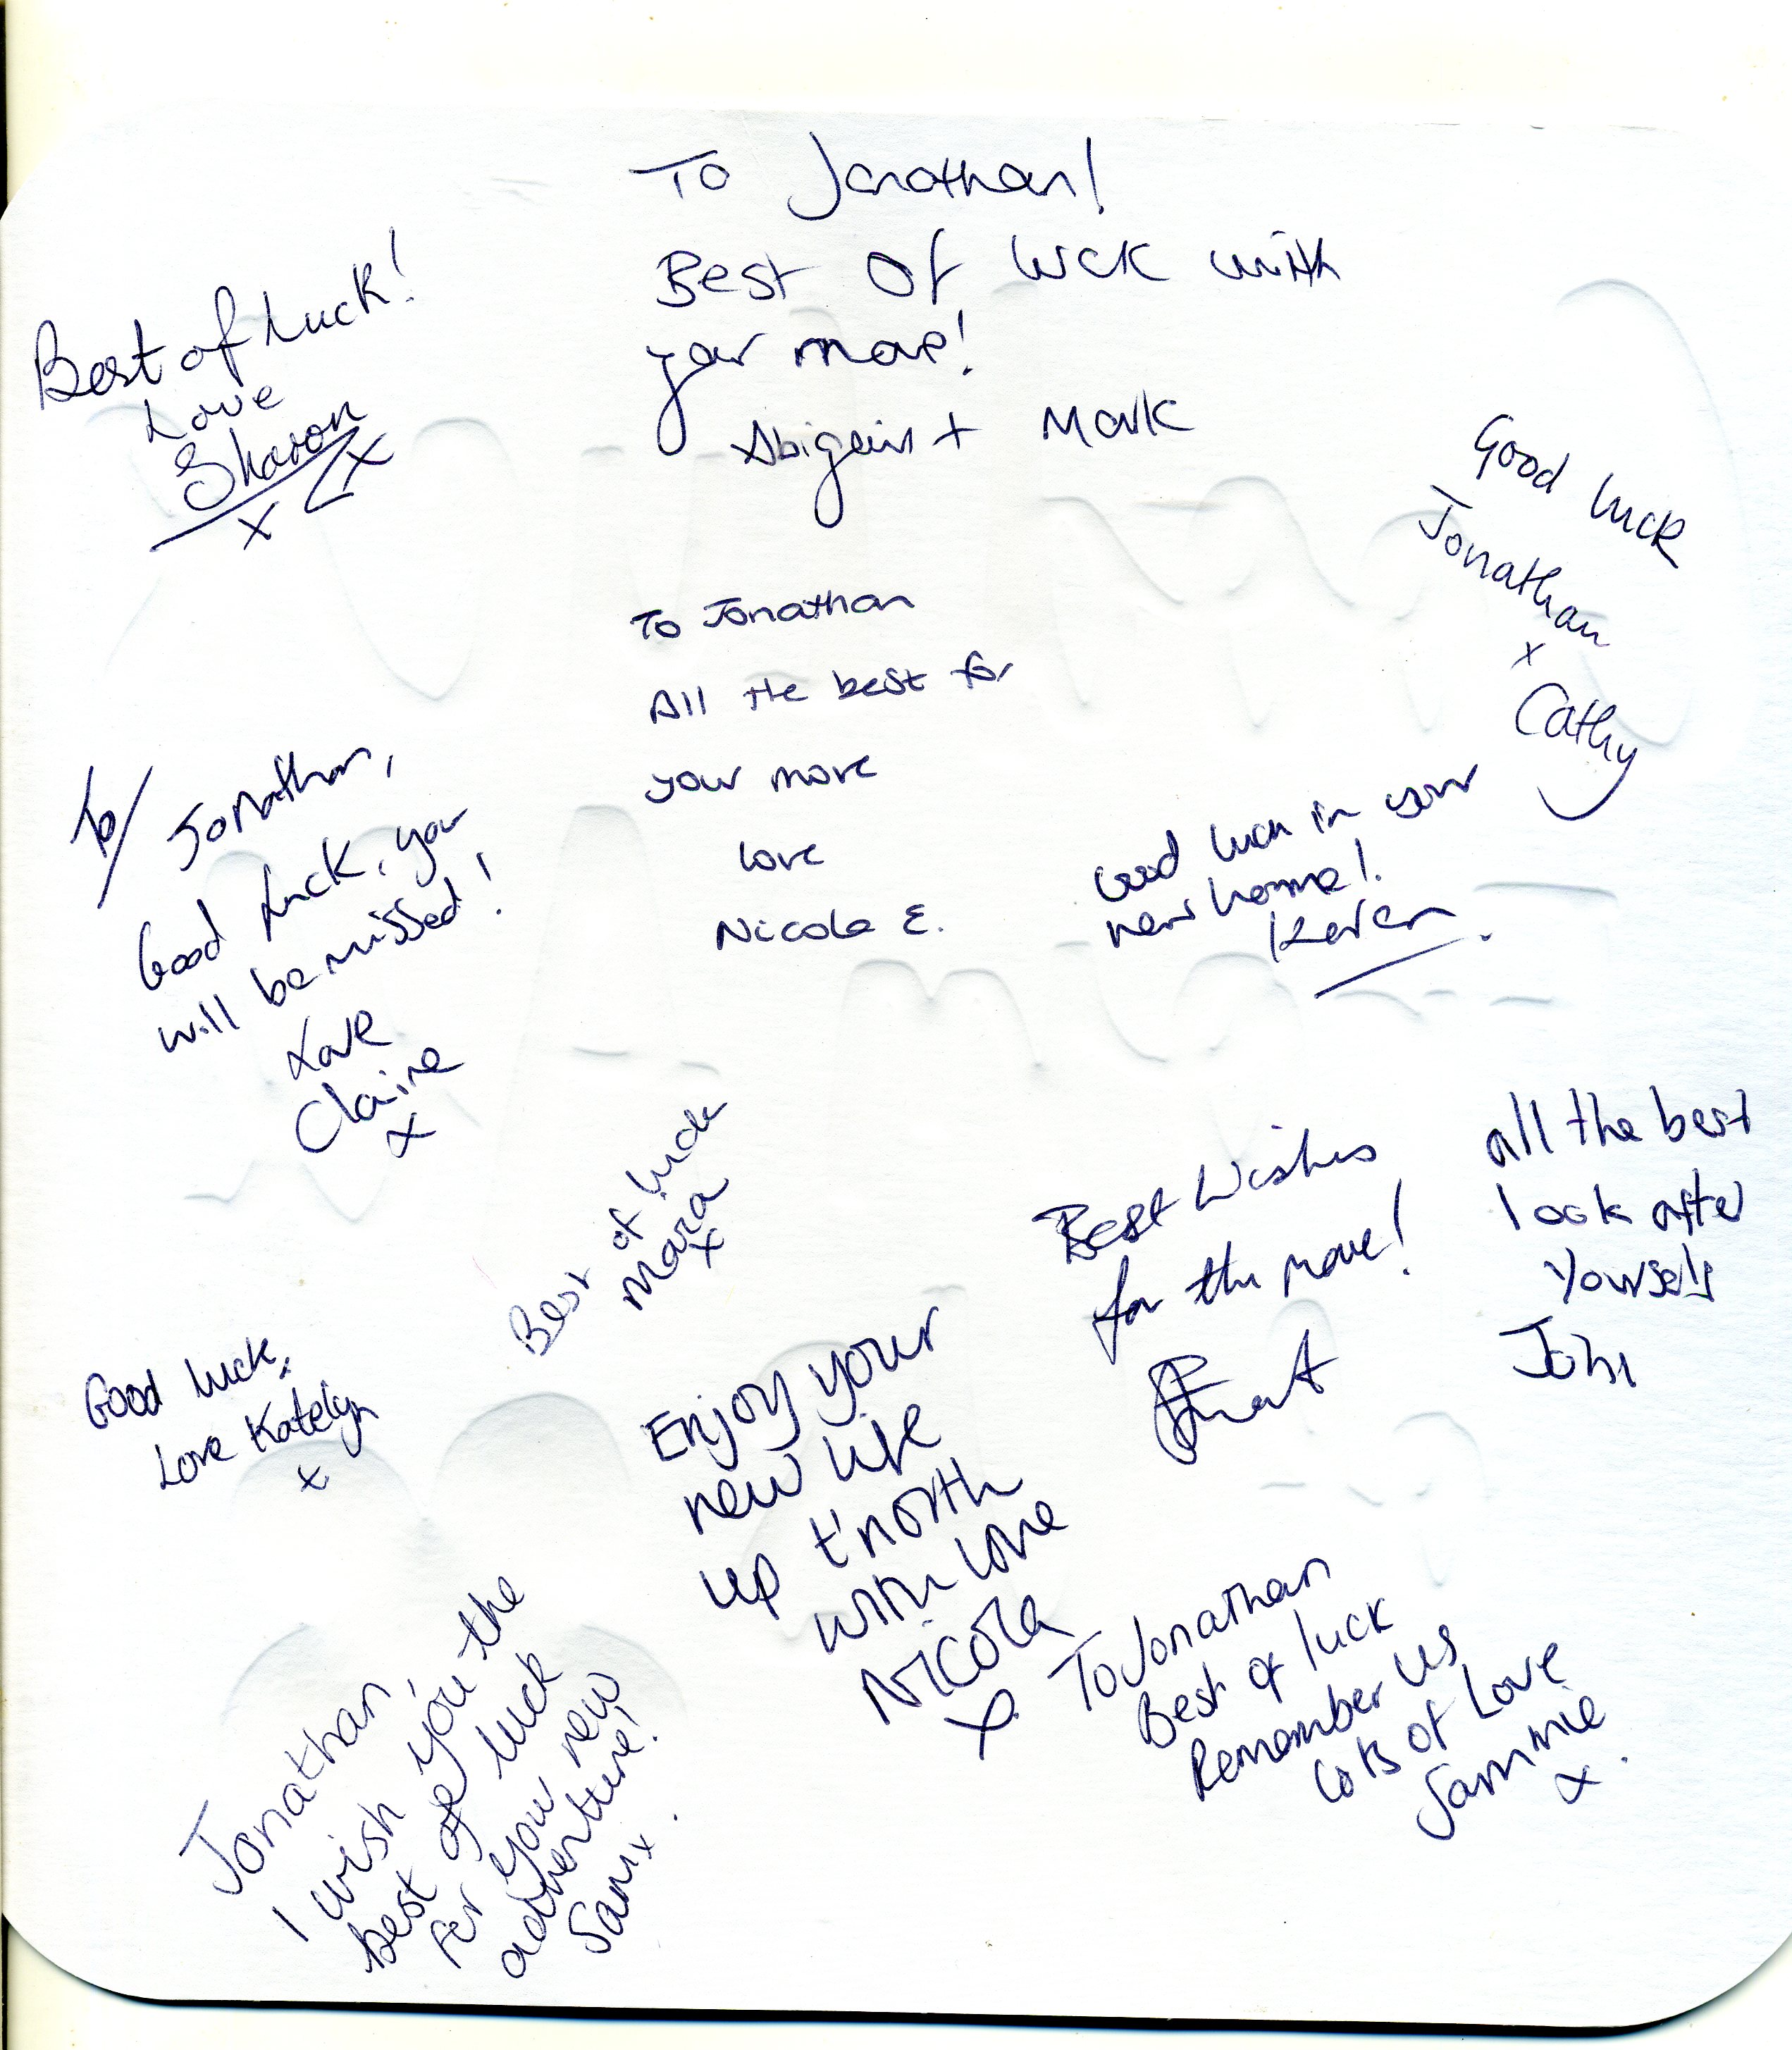 To Jonathan!
Best Of luck with
your move!
Abigail + Mark
Best of Luck!
Love
Sharon
x x
Good luck
Jonathan
x
Cathy
To Jonathan
All the best for
your move
love
Nicola E.
To/ Jonathan,
Good Luck, you
will be missed!
Love
Claire
x
Good luck in your
new home!.
Karen.
Best of luck
Mara
x
Best Wishes
for the move!
all the best
look after
yourself
John
Good luck,
Love Katelyn
x
Enjoy your
new life
up t'north
with love
Nicola
x
To Jonathan
Best of luck
Remember us
Lots of Love
Sammie
x.
Jonathan,
I wish you the
best of luck
for your new
adventure!
Sam x.